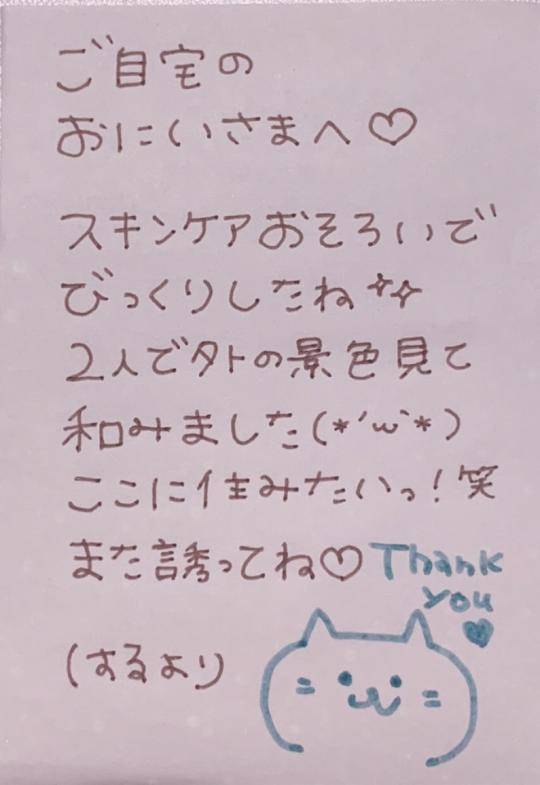 ご自宅の
おにいさまへ♡
スキンケアおそろいで
びっくりしたね✧✧
2人で外の景色見て
和みました(*´ω`*)
ここに住みたいっ!笑
また誘ってね♡ Thank
you
♥
(するより